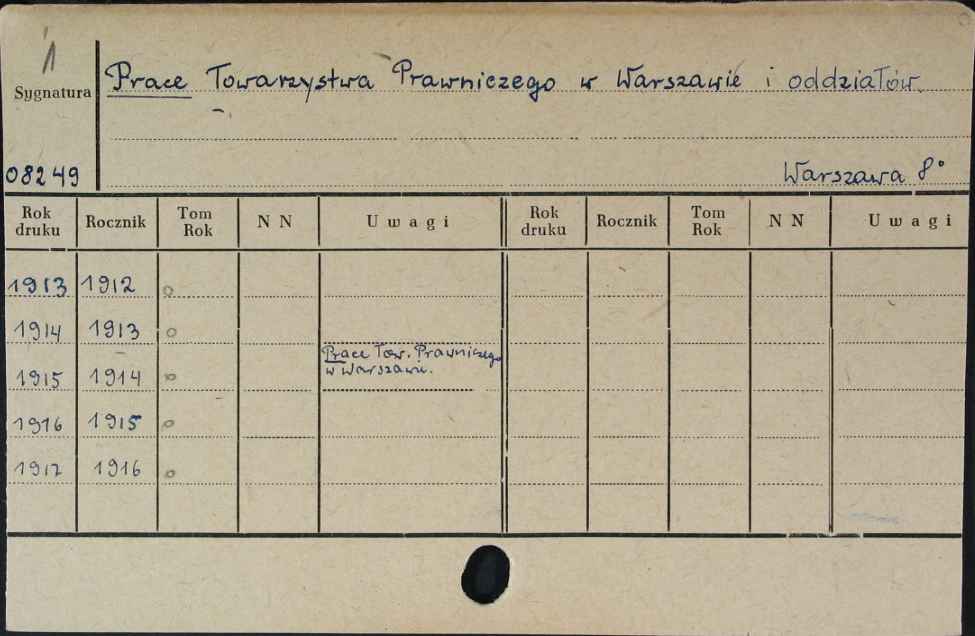 1
Sygnatura
Prace Towarzystwa Prawniczego w Warszawie i oddziałów.
08249
Warszawa 8°
Rok druku Rocznik Tom Rok N N Uwagi Rok druku Rocznik Tom Rok N N Uwagi
1913 1912 o
1914 1913 o
Prace Tow. Prawniczego
w Warszawie.
1915 1914 o
1916 1915 o
1917 1916 o